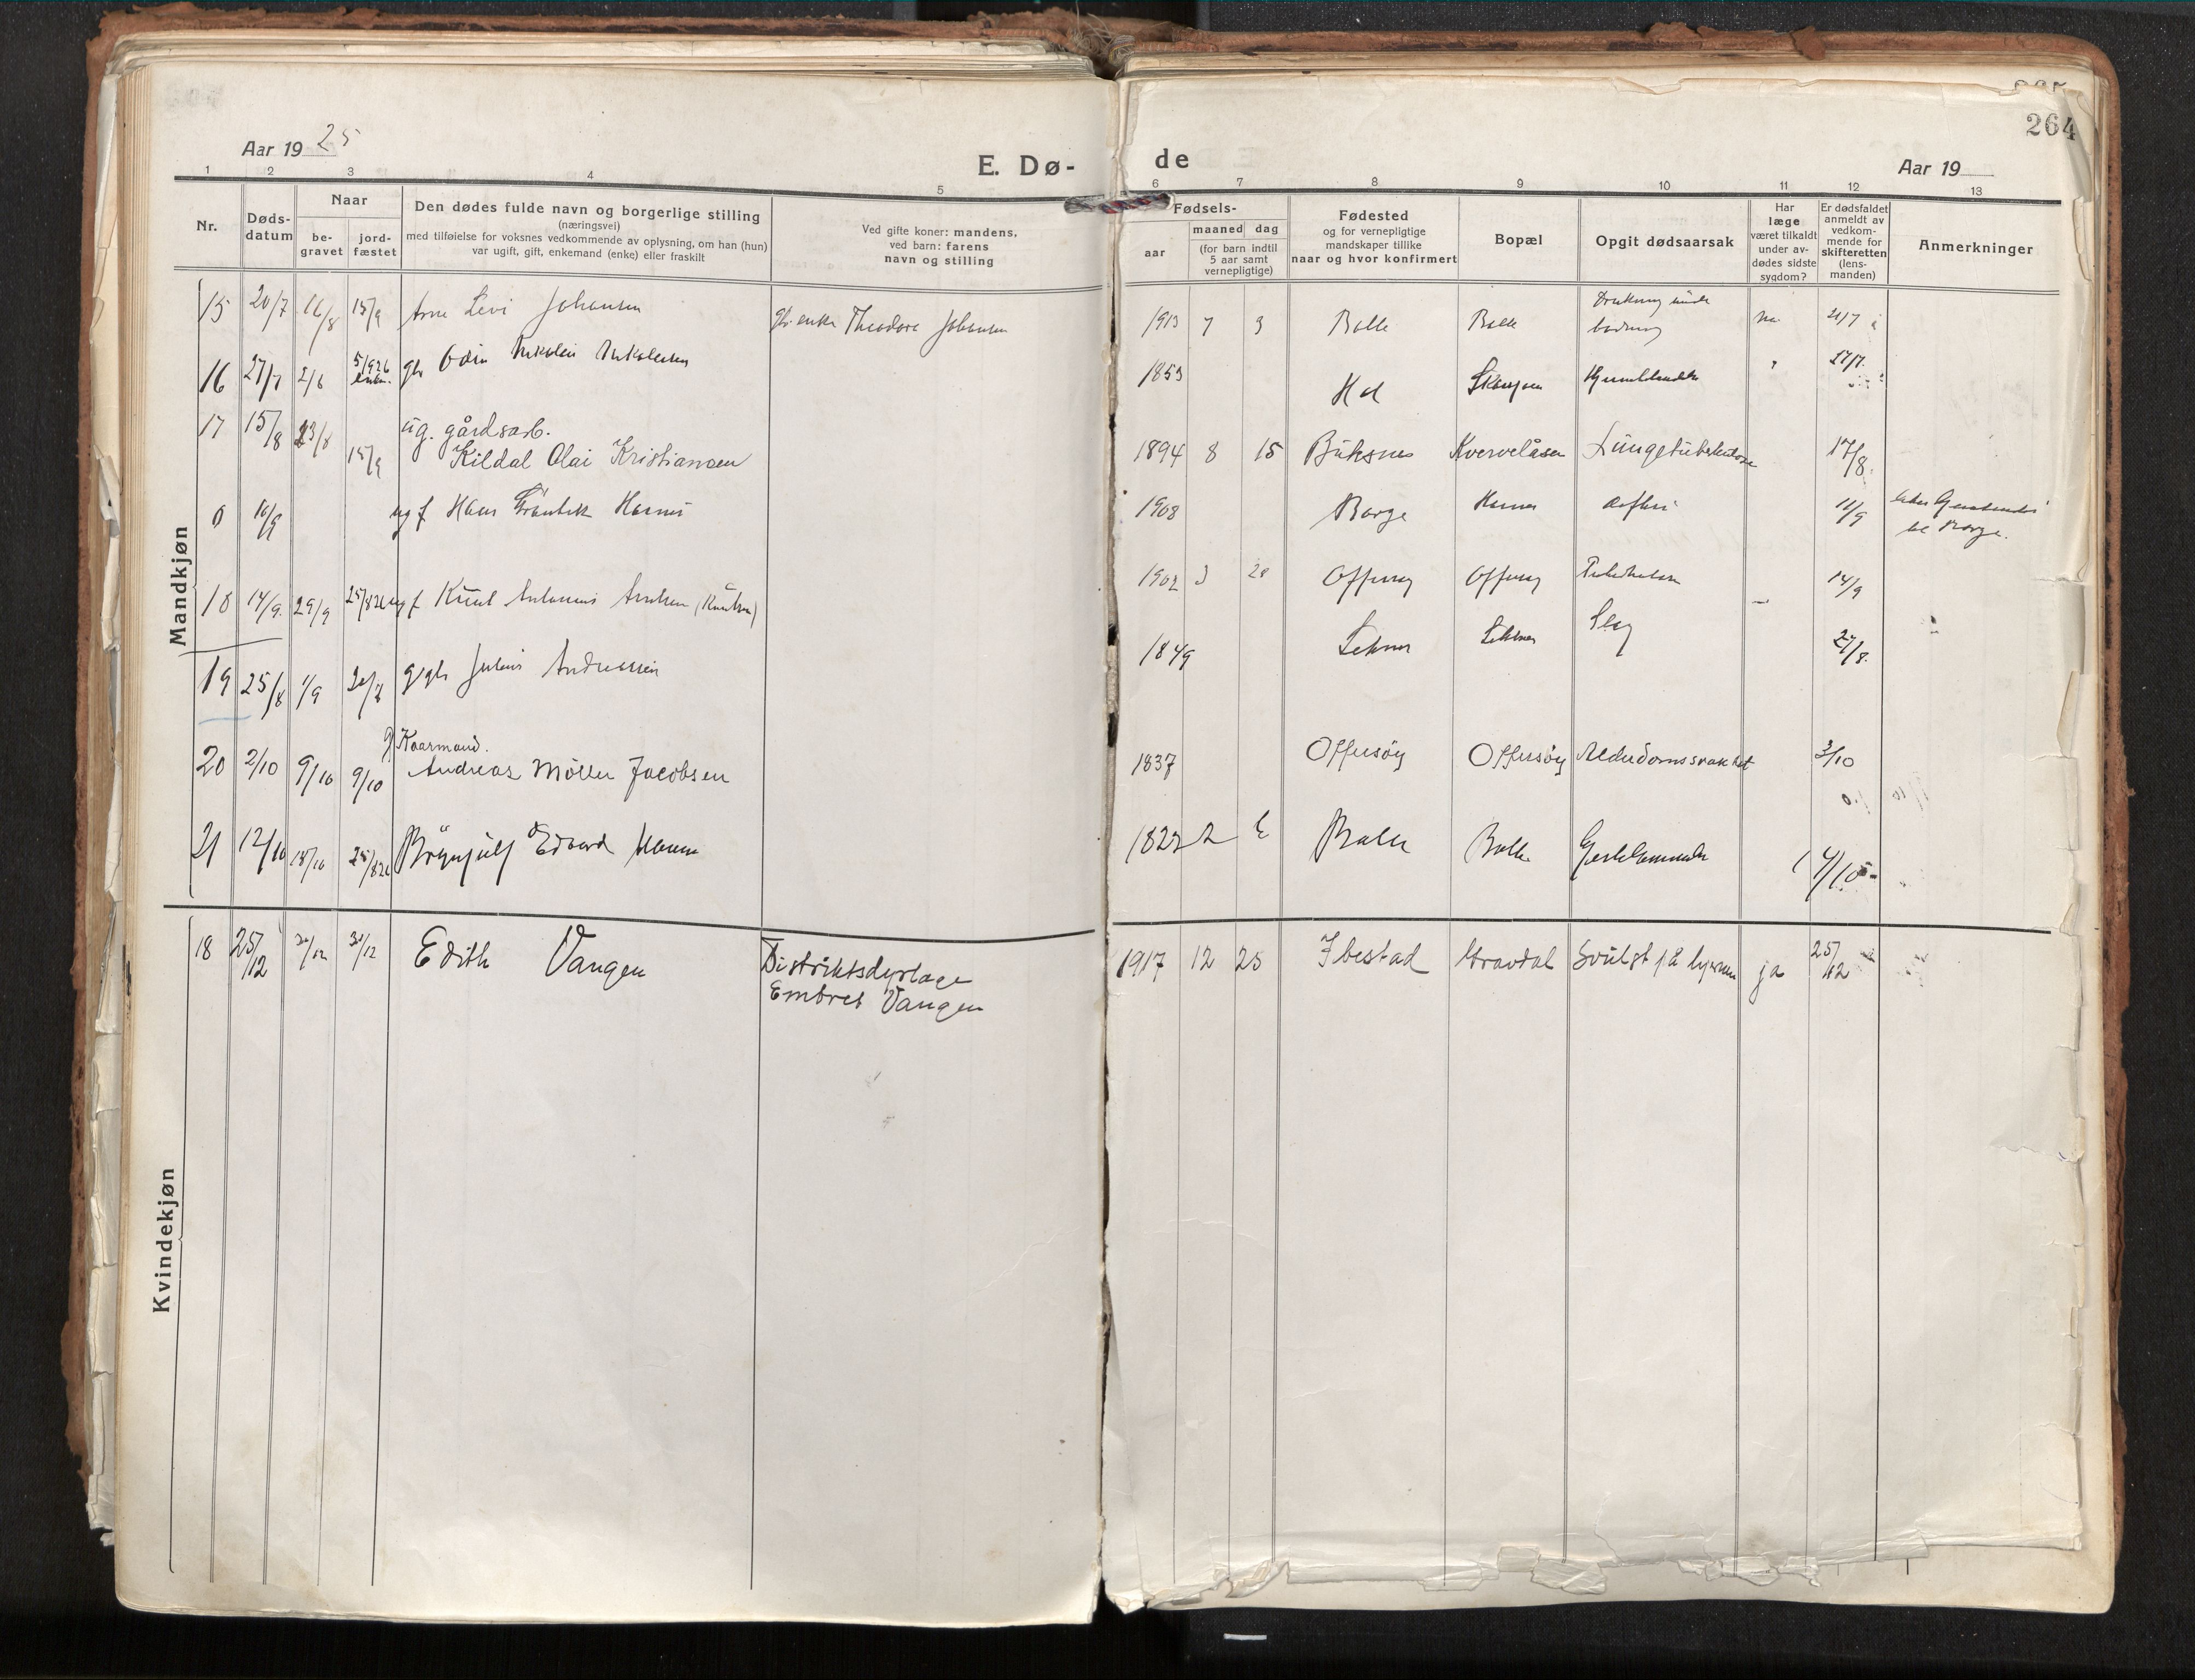 264
Aar 1925
E. Dø- de
Aar 19
1 2 3 4 5 6 7 8 9 10 11 12 13
Nr.
Døds-
datum
Naar
be-
gravet
jord-
fæstet
Den dødes fulde navn og borgerlige stilling
(næringsvei)
med tilføielse for voksnes vedkommende av oplysning, om han (hun)
var ugift, gift, enkemand (enke) eller fraskilt
Ved gifte koner: mandens,
ved barn: farens
navn og stilling
Fødsels-
aar
maaned dag
(for barn indtil
5 aar samt
vernepligtige)
Fødested
og for vernepligtige
mandskaper tillike
naar og hvor konfirmert
Bopæl
Opgit dødsaarsak
Har
læge
været tilkaldt
under av-
dødes sidste
sygdom?
Er dødsfaldet
anmeldt av
vedkom-
mende for
skifteretten
(lens-
manden)
Anmerkninger
Mandkjøn
15 20/7 16/8 15/9 Arne Levi Johansen Theodore Johansen 1913 7 3 Balle Balle 21/7
16 27/7 5/926 Odin Nikolai Nikolaisen 1853 Hol 27/7
17 15/8 23/8 15/9 ug. gårdsarb.
Kildal Olai Kristiansen 1894 8 15 Buksnes Kvervelåsen Lungetuberkulose 17/8
0 10/9 ug f Hans 1908 Borge 11/9
Borge.
18 14/9 29/9 25/826 ug f Knut (Knutsen) 1902 3 28 14/9
19 25/8 1/9 Julius Andreassen 1849 27/8
20 2/10 9/10 9/10 g Kaarmand.
Andreas Møller Jacobsen 1837 Offersøy Offersøy Alderdomssvakhet 3/10
21 12/10 18/10 25/826 Brynjulf Edvard Hansen 2 Balle Balle 14/10
Kvindekjøn
18 25/12 30/12 30/12 Edith Vangen Distriktsdyrlæge
Embret Vangen 1917 12 25 Ibestad Gravdal Svulst på hjernen ja 25/12